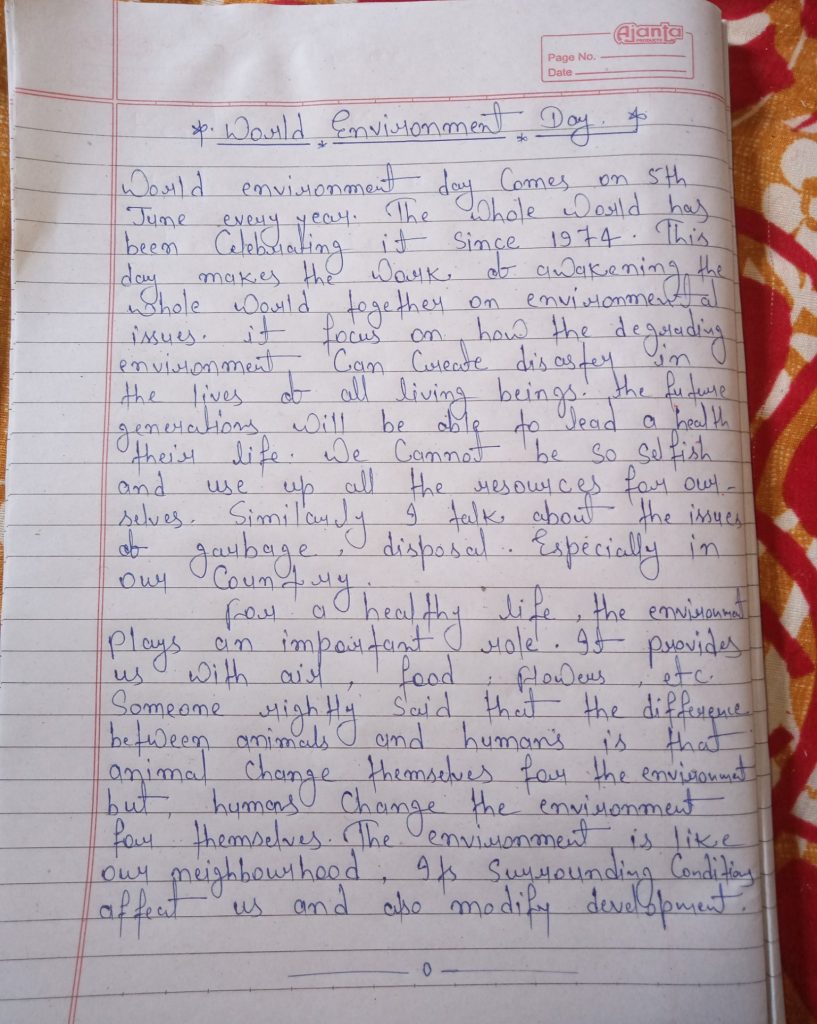 Ajanta
PRODUCTS
Page No.
Date
* World * Environment * Day. *
World environment day Comes on 5th
June every year. The Whole World has
been Celebrating it Since 1974. This
day makes the Work of awakening the
whole World together on environmental
issues. it focus on how the degrading
environment Can Create disaster in
the lives of all living beings. the future
generations Will be able to lead a health
their life. We Cannot be so selfish
and use up all the resources for our-
selves. Similarly I talk about the issues
of garbage, disposal. Especially in
our Country.
For a healthy life, the environmet
Plays an important role. It provides
us with air, food, flowers, etc.
Someone rightly Said that the difference
between animals and human's is that
animal Change themselves for the environmet
but, humans Change the environment
for themselves. The environment is like
our neighbourhood, Its Surrounding Conditions
affect us and also modify development.
0